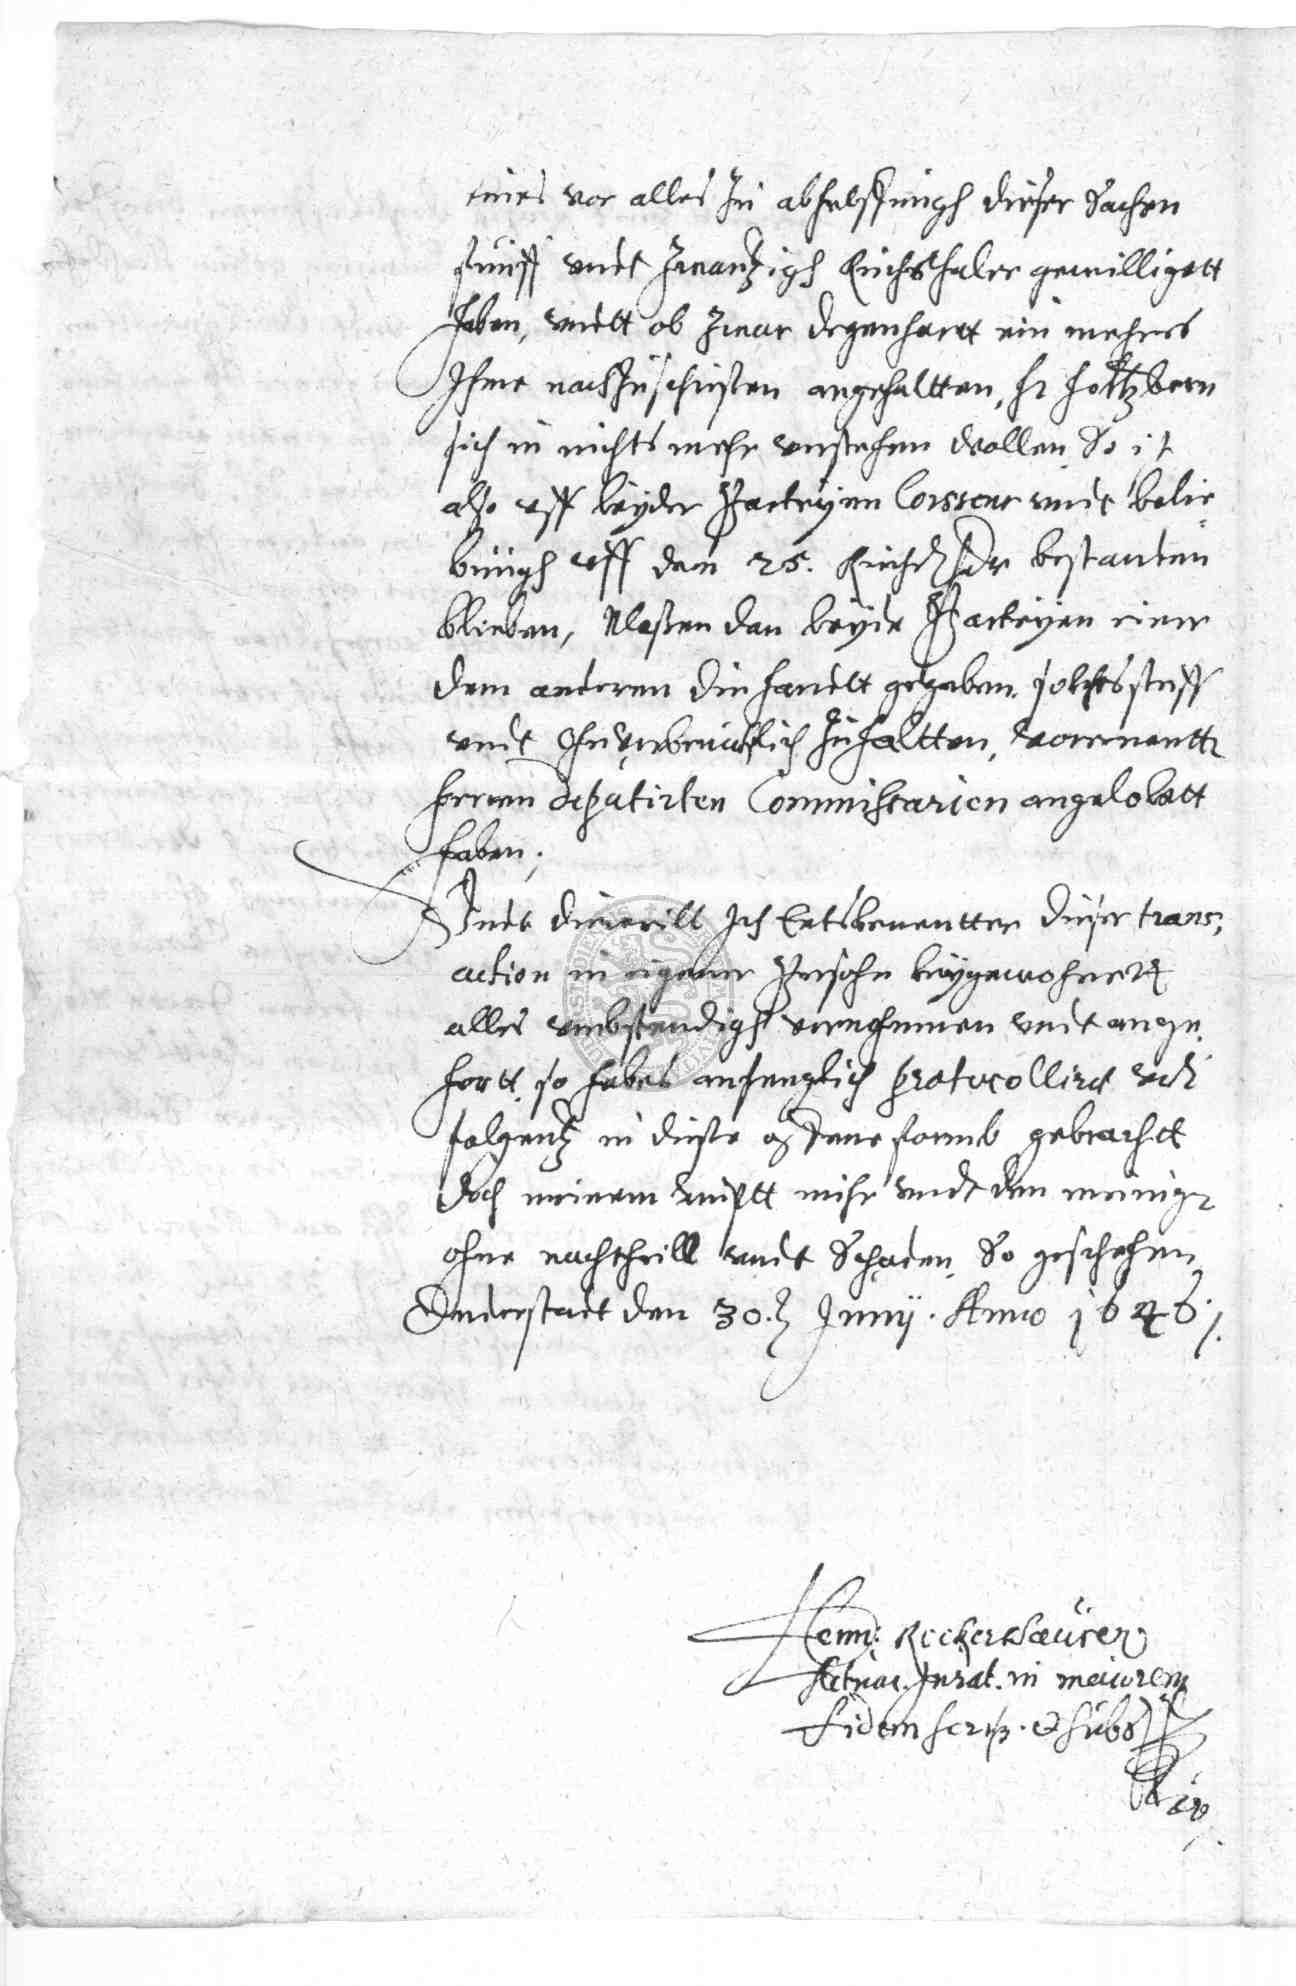 eines vor alles Zu abhelffungh dieser Sachen
fünff undt Zwantzigh Reichsthaler gewilligett
haben, undtt ob Zwar Degenhartt ein mehres
Ihme nachzuschiesten angehaltten, hr Holtzborn
sich in nichts mehr verstehen wollen So ist
also uff beyder Parteyen Consens undt belie
bungh uff den 25. Reichsthlr bestanden
blieben, Masten dan beyde Parteyen einer
dem anderen die handtt gegeben. solches steiff
undt ohnverbruchlich Zuhaltten, vorernentten
herren Deputirten Commissarien angelobett
haben;
Undt dieweill Ich Entsbenentter dieser trans,
action in eigener Persohn beygewohnett
alles umbstendigh vernohmmen undt ange
hortt, so habes anfenglich protocollirt undt
folgentz in dieste formb gebrachtt
doch meinem ambtt mihr undt den meinigen
ohne nachtheill undt Schaden. So geschehen
Duderstadt den 30. Junij. Anno 1646.
Henn: Reckershausen
Actuar. Jurat. in maiorem
fidem scrip. & subs